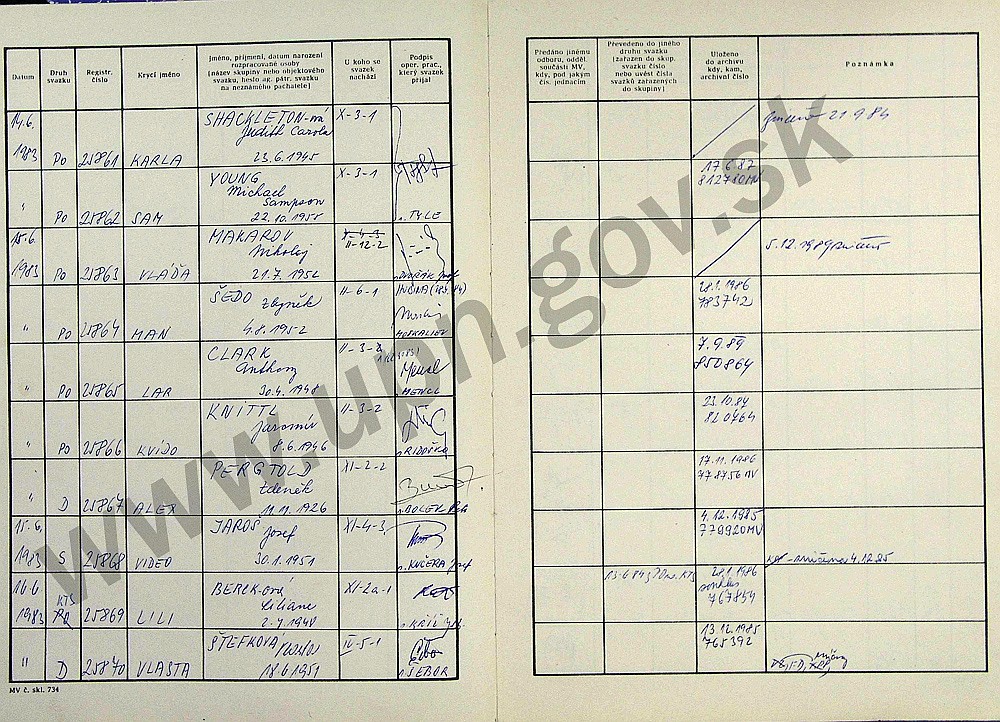 Datum
Druh svazku
Registr. číslo
Krycí jméno
Jméno, příjmení, datum narození rozpracované osoby (název skupiny nebo objektového svazku, heslo ag. pátr. svazku na neznámého pachatele)
U koho se svazek nachází
Podpis opr. prac., který svazek přijal
Předáno jinému odboru, odděl. součásti MV, kdy, pod jakým čís. jednacím
Převedeno do jiného druhu svazku (zařazen do skup. svazku číslo nebo uvést čísla svazků zařazených do skupiny)
Uloženo do archivu kdy, kam, archivní číslo
Poznámka
14.6. SHACKLETON-ová X-3-1
Judith Carola
1983 Po 25861 KARLA 23.6.1945
21.9.84
YOUNG X-3-1
Michael
Sampson
" Po 25862 SAM 22.10.1955 TYLE
17.6.87
812780MV
15.6. MAKAROV II-12-2
Nikolaj
1983 Po 25863 VLÁĎA 21.7.1952 DVOŘÁK
5.12.1989
ŠEDO Zbyněk II-6-1
" Po 25864 MAN 4.8.1952 MOSKALIEV
28.1.1986
783742
CLARK II-3-2
Anthony
" Po 25865 LAR 30.4.1948 MENCL
7.9.89
850864
KNITTL II-3-2
Jaromír
" Po 25866 KVÍDO 8.6.1946
23.10.84
820464
PERGTOLD XI-2-2
Zdeněk
" D 25867 ALEX 11.11.1926
17.11.1986
778756MV
15.6. JAROŠ Josef XI-4-3
1983 S 25868 VIDEO 30.1.1951 KUČERA Josef
4.12.1985
779920MV
4.12.85
16.6 BERCK-ová XI-2a-1
KTS Liliane
1983 Po 25869 LILI 2.7.1948
13.6.84
28.1.1986
souhlas
767854
ŠTEFKOVÁ IV-5-1
" D 25870 VLASTA 18.6.1951 ŠEBOR
13.12.1985
765392
MV č. skl. 734
www.upn.gov.sk